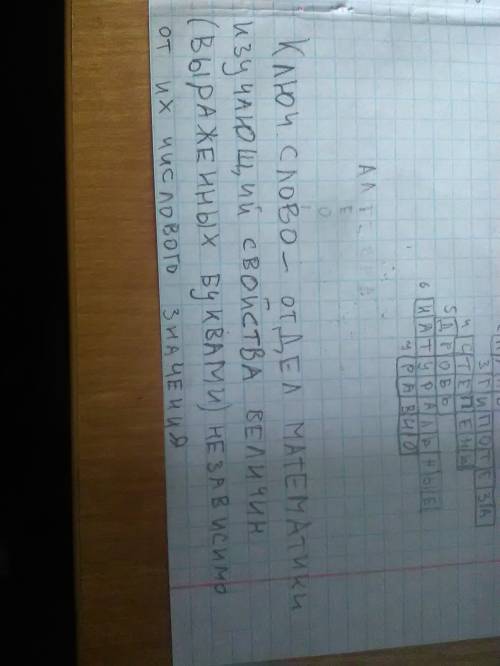 3 ГИПОТЕЗА
4 СТЕПЕНЬ
5 ДРОБЬ
6 НАТУРАЛЬНЫЕ
ч РАВНО
АЛГЕБРА
Е
О
КЛЮЧ. СЛОВО – ОТДЕЛ МАТЕМАТИКИ
ИЗУЧАЮЩИЙ СВОЙСТВА ВЕЛИЧИН
(ВЫРАЖЕННЫХ БУКВАМИ) НЕЗАВИСИМО
ОТ ИХ ЧИСЛОВОГО ЗНАЧЕНИЯ